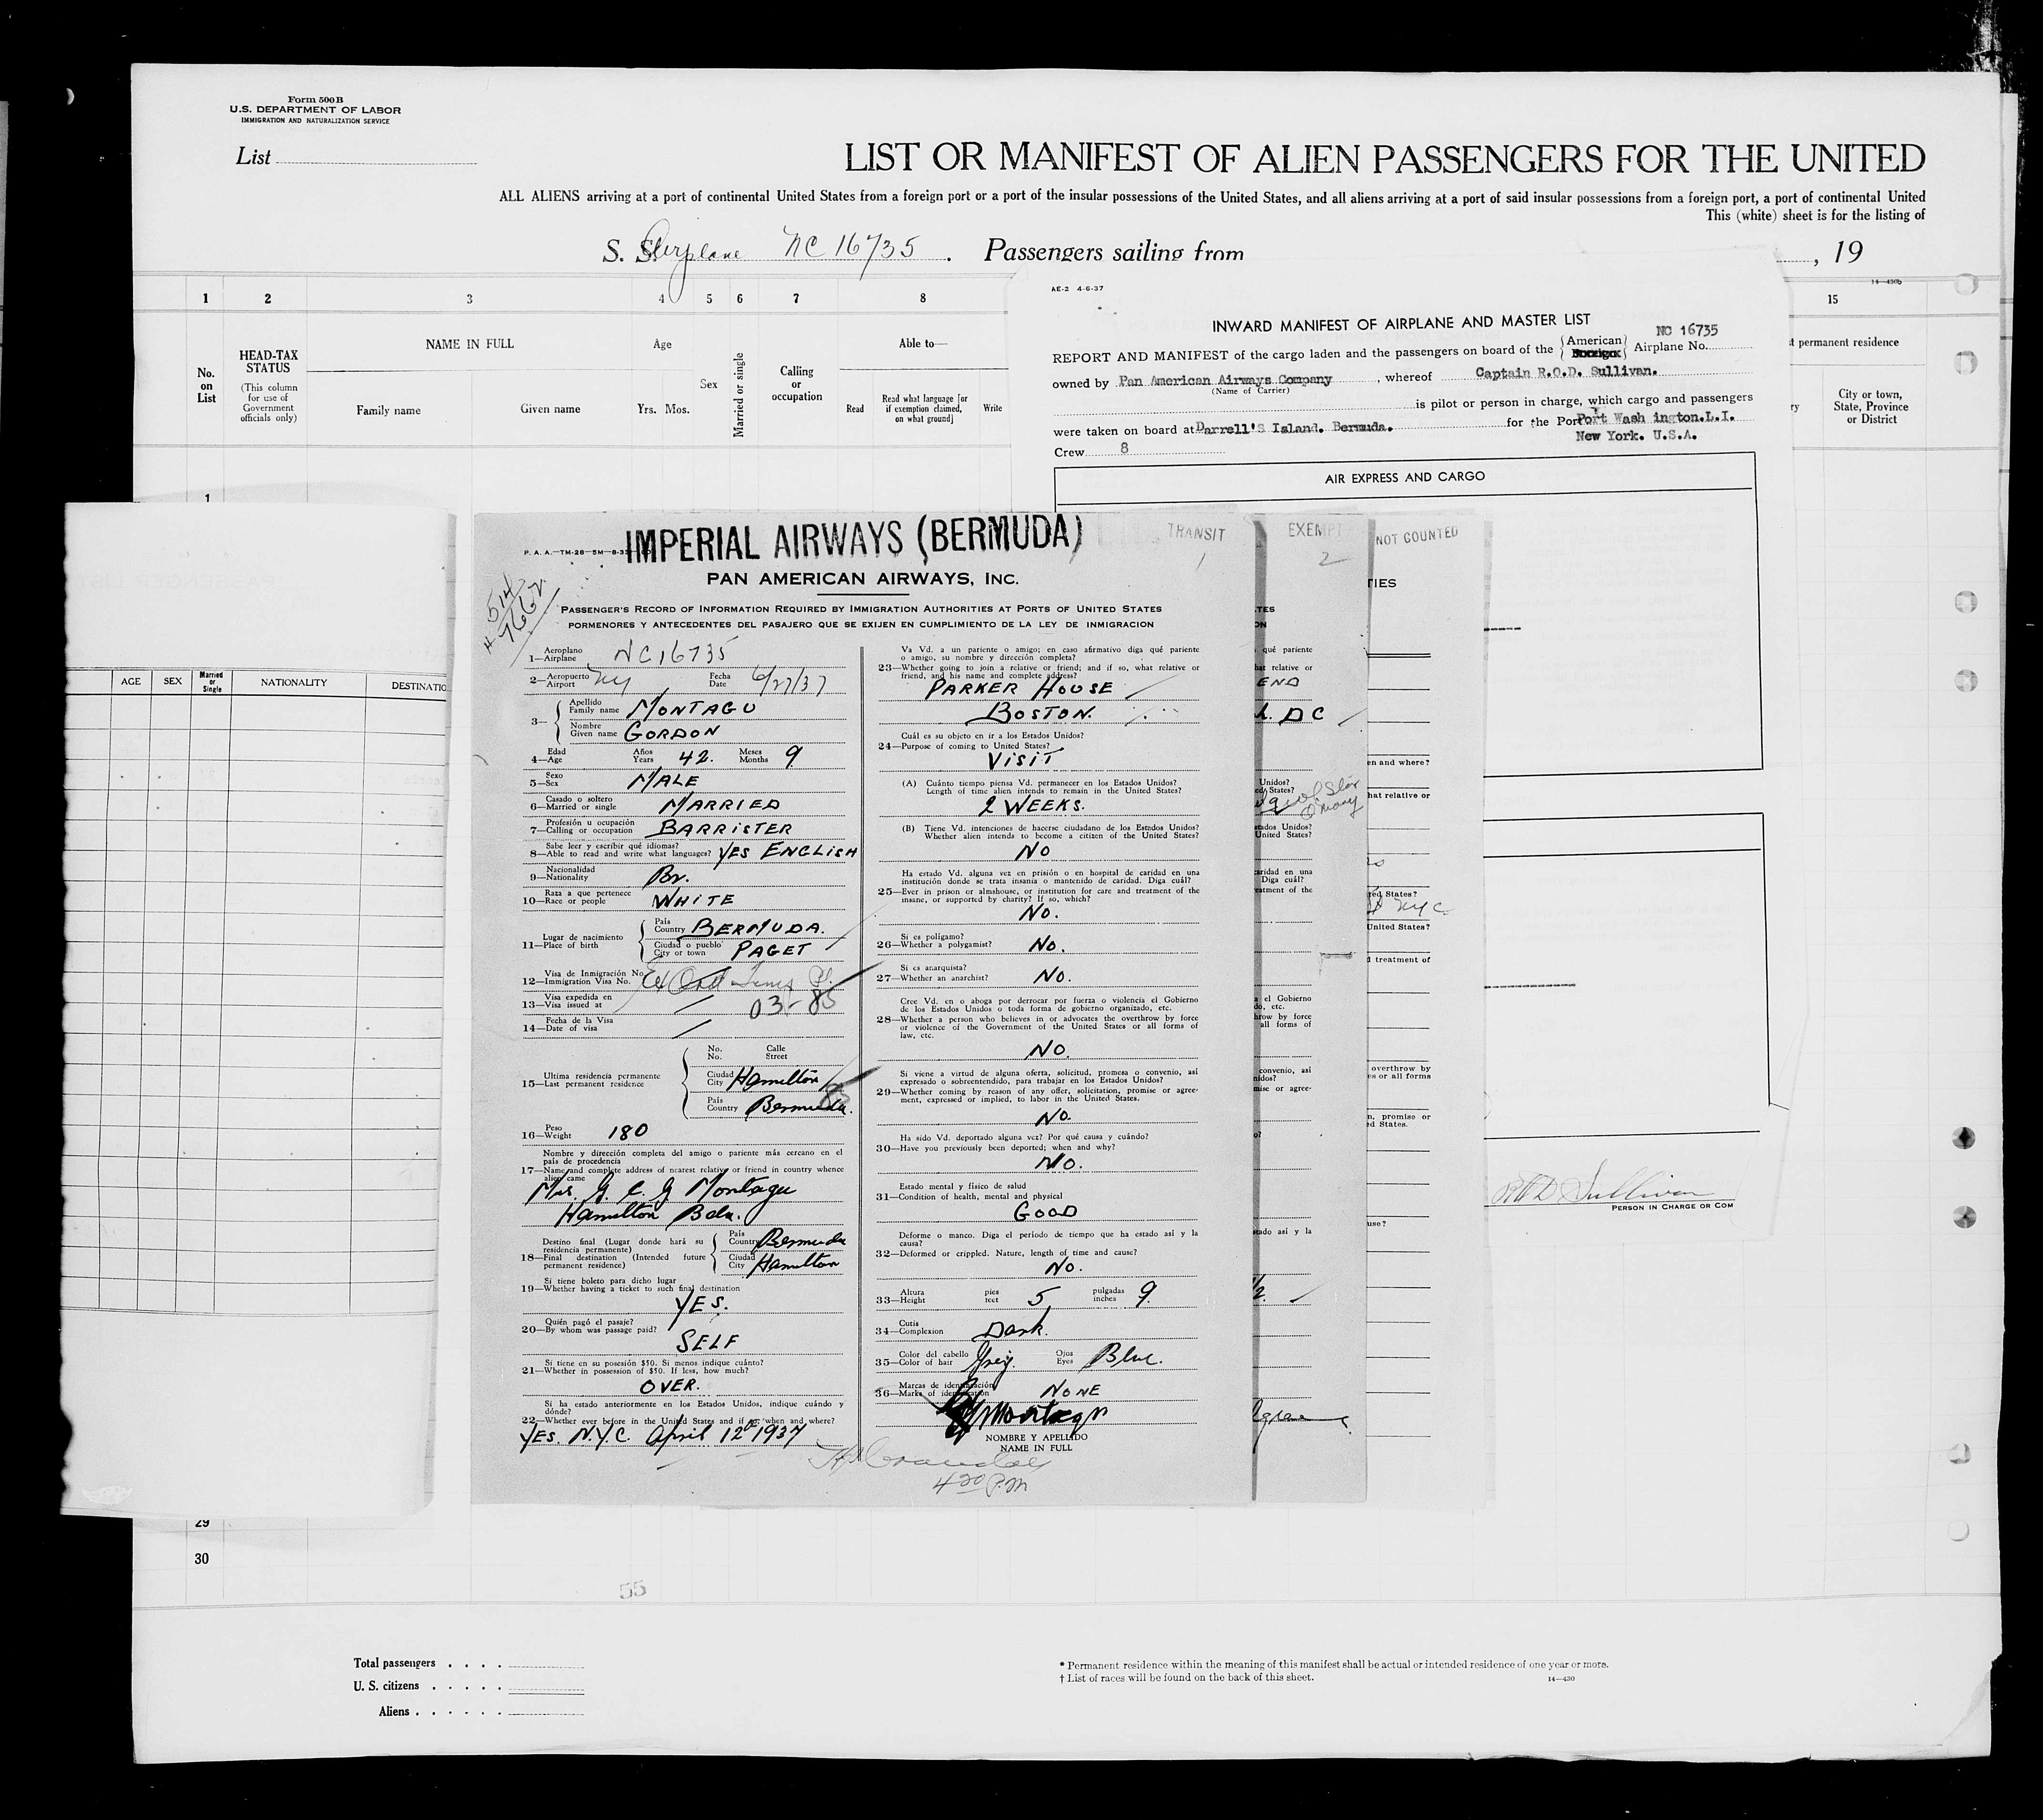 Form 500 B
U.S. DEPARTMENT OF LABOR
IMMIGRATION AND NATURALIZATION SERVICE
List
LIST OR MANIFEST OF ALIEN PASSENGERS FOR THE UNITED
ALL ALIENS arriving at a port of continental United States from a foreign port or a port of the insular possessions of the United States, and all aliens arriving at a port of said insular possessions from a foreign port, a port of continental United
This (white) sheet is for the listing of
S. S. Airplane NC 16735. Passengers sailing from , 19
1 2 3 4 5 6 7 8 15
No. on List
HEAD-TAX STATUS
(This column for use of Government officials only)
NAME IN FULL
Family name Given name
Age
Yrs. Mos.
Sex
Married or single
Calling or occupation
Able to—
Read
Read what language [or if exemption claimed, on what ground]
Write
t permanent residence
City or town, State, Province or District
1
14—430b
AE-2 4-6-37
INWARD MANIFEST OF AIRPLANE AND MASTER LIST
REPORT AND MANIFEST of the cargo laden and the passengers on board of the {American} Airplane No. NC 16735
owned by Pan American Airways Company, whereof Captain R.O.D. Sullivan.
(Name of Carrier)
is pilot or person in charge, which cargo and passengers
were taken on board at Darrell'S Island. Bermuda. for the Port Port Wash ington.L.I.
New York. U.S.A.
Crew 8
AIR EXPRESS AND CARGO
AGE SEX Married or Single NATIONALITY DESTINATIO
IMPERIAL AIRWAYS (BERMUDA)
TRANSIT
1
EXEMPT
2
NOT COUNTED
P. A. A.—TM-28—5M—8-3
PAN AMERICAN AIRWAYS, INC.
514
7662
PASSENGER'S RECORD OF INFORMATION REQUIRED BY IMMIGRATION AUTHORITIES AT PORTS OF UNITED STATES
PORMENORES Y ANTECEDENTES DEL PASAJERO QUE SE EXIJEN EN CUMPLIMIENTO DE LA LEY DE INMIGRACION
Aeroplano
1—Airplane NC16735
Aeropuerto Fecha
2—Airport NY Date 6/27/37
Apellido
3— Family name MONTAGU
Nombre
Given name GORDON
Edad Años Meses
4—Age Years 42. Months 9
Sexo
5—Sex MALE
Casado o soltero
6—Married or single MARRIED
Profesión u ocupación
7—Calling or occupation BARRISTER
Sabe leer y escribir qué idiomas?
8—Able to read and write what languages? YES ENGLISH
Nacionalidad
9—Nationality Br.
Raza a que pertenece
10—Race or people WHITE
Lugar de nacimiento
11—Place of birth
País
Country BERMUDA.
Ciudad o pueblo
City or town PAGET
Visa de Inmigración No.
12—Immigration Visa No.
Visa expedida en
13—Visa issued at 03-85
Fecha de la Visa
14—Date of visa
No. Calle
No. Street
Ultima residencia permanente
15—Last permanent residence
Ciudad
City Hamilton
País
Country Bermuda.
Peso
16—Weight 180
Nombre y dirección completa del amigo o pariente más cercano en el país de procedencia
17—Name and complete address of nearest relative or friend in country whence alien came
Mrs. G. C. G Montagu
Hamilton Bda.
Destino final (Lugar donde hará su residencia permanente)
18—Final destination (Intended future permanent residence)
País
Country Bermuda
Ciudad
City Hamilton
Si tiene boleto para dicho lugar
19—Whether having a ticket to such final destination
YES.
Quién pagó el pasaje?
20—By whom was passage paid?
SELF
Si tiene en su posesión $50. Si menos indique cuánto?
21—Whether in possession of $50. If less, how much?
OVER.
Si ha estado anteriormente en los Estados Unidos, indique cuándo y dónde?
22—Whether ever before in the United States and if so, when and where?
YES. N.Y.C. April 12th 1937
Va Vd. a un pariente o amigo; en caso afirmativo diga qué pariente o amigo, su nombre y dirección completa?
23—Whether going to join a relative or friend; and if so, what relative or friend, and his name and complete address?
PARKER HOUSE
BOSTON.
Cuál es su objeto en ir a los Estados Unidos?
24—Purpose of coming to United States?
VISIT
(A) Cuánto tiempo piensa Vd. permanecer en los Estados Unidos?
Length of time alien intends to remain in the United States?
2 WEEKS.
(B) Tiene Vd. intenciones de hacerse ciudadano de los Estados Unidos?
Whether alien intends to become a citizen of the United States?
NO
Ha estado Vd. alguna vez en prisión o en hospital de caridad en una institución donde se trata insania o mantenido de caridad. Diga cuál?
25—Ever in prison or almshouse, or institution for care and treatment of the insane, or supported by charity? If so, which?
NO.
Si es polígamo?
26—Whether a polygamist? NO.
Si es anarquista?
27—Whether an anarchist? NO.
Cree Vd. en o aboga por derrocar por fuerza o violencia el Gobierno de los Estados Unidos o toda forma de gobierno organizado, etc.
28—Whether a person who believes in or advocates the overthrow by force or violence of the Government of the United States or all forms of law, etc.
NO.
Si viene a virtud de alguna oferta, solicitud, promesa o convenio, así expresado o sobreentendido, para trabajar en los Estados Unidos?
29—Whether coming by reason of any offer, solicitation, promise or agreement, expressed or implied, to labor in the United States.
NO.
Ha sido Vd. deportado alguna vez? Por qué causa y cuándo?
30—Have you previously been deported; when and why?
NO.
Estado mental y físico de salud
31—Condition of health, mental and physical
GOOD
Deforme o manco. Diga el período de tiempo que ha estado así y la causa?
32—Deformed or crippled. Nature, length of time and cause?
NO.
Altura pies pulgadas
33—Height feet 5 inches 9.
Cutis
34—Complexion Dark.
Color del cabello Ojos
35—Color of hair Grey. Eyes Blue.
Marcas de identificación
36—Marks of identification NONE
Montagu
NOMBRE Y APELLIDO
NAME IN FULL
4 20 P.M
END
DC
R O D Sullivan
PERSON IN CHARGE OR COM
29
30
55
Total passengers
U. S. citizens
Aliens
* Permanent residence within the meaning of this manifest shall be actual or intended residence of one year or more.
† List of races will be found on the back of this sheet.
14—430